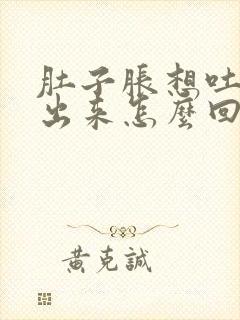 肚子脹想吐
出来怎麼回
黃克誠